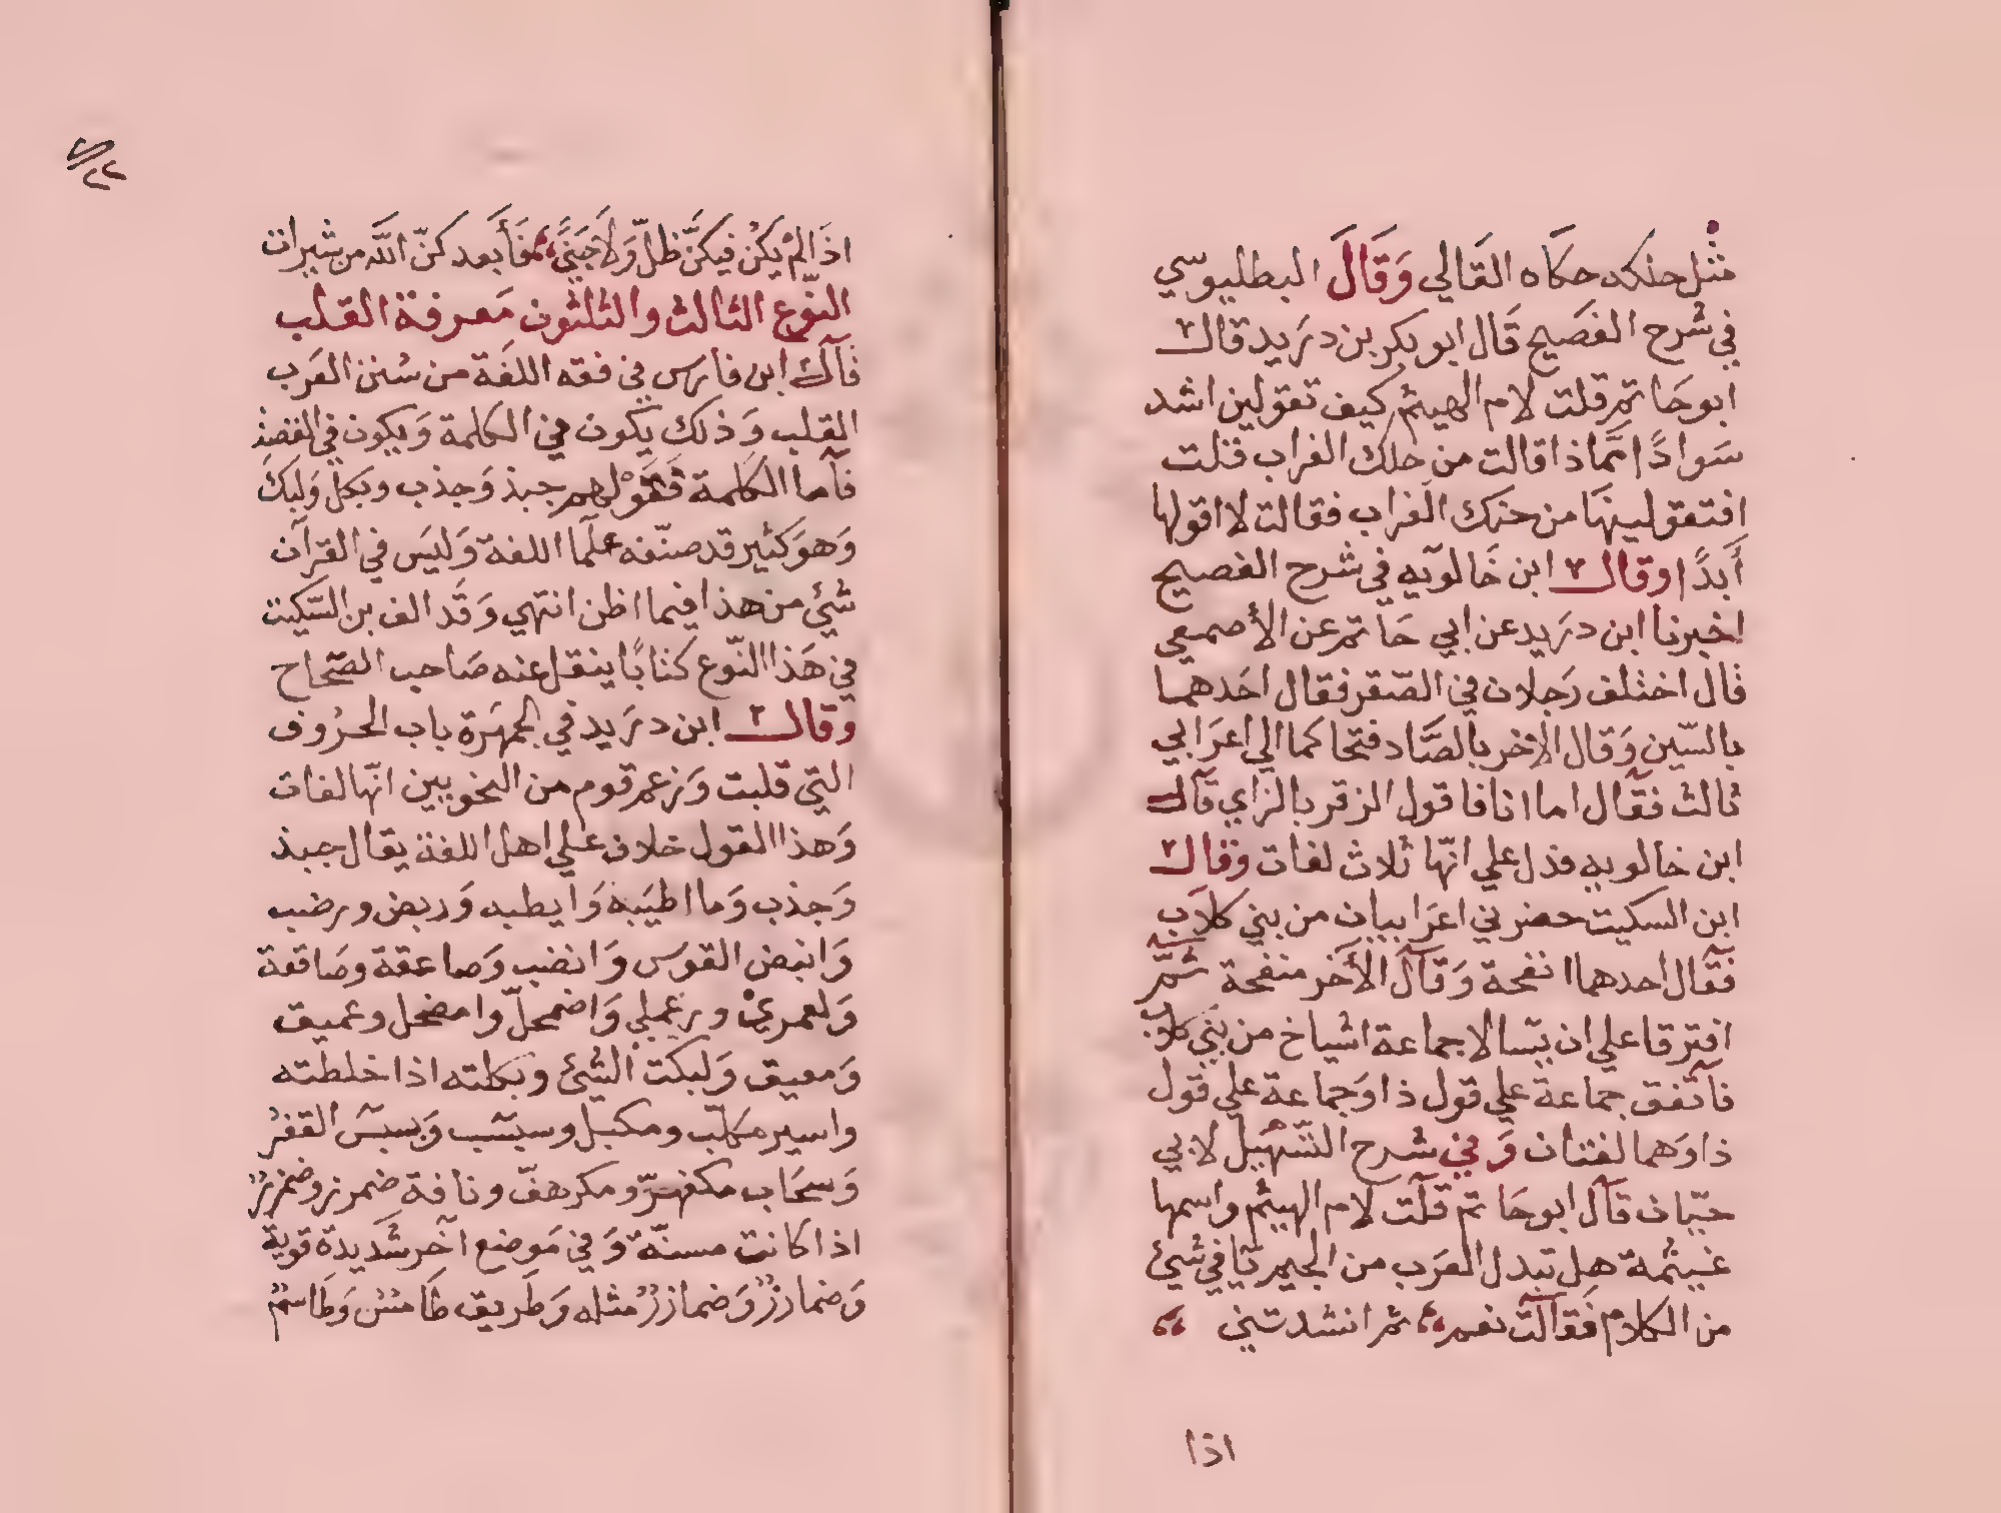 مثل حنكه حكاه القالي وَقَالَ البطليوسي
في شرح الفصيح قَال ابو بكر بن دريد قال
ابو حَاتم قلت لام الهيثم كيف تقولين اشد
سَوادًا ممّاذا قالت من حلك الغراب قلت
افتقولينهَا من حنك الغراب فقالت لا اقولها
أبدًا وقال ابن خَالويه في شرح الفصيح
اخبرنا ابن دريد عن ابي حَاتم عن الأصمعي
قال اختلف رَجلان في الصّقر فقال احَدهما
بالسّين وَقال الاخر بالصَّاد فتحاكما الي اعرَابي
ثالث فقال اما انا فاقول الزقر بالزاي قال
ابن خالويه فدل علي انّها ثلاث لغات وقال
ابن السكيت حضرني اعرَابيان من بني كلاب
فقال احدهما انفحة وَقال الأخر منفحة ثمّ
افترقا علي ان يسالا جماعة اشياخ من بني كلاب
فاتفق جماعة علي قول ذا وَجماعة علي قول
ذا وَهما لغتان وَفي شرح التّسهيل لابي
حيّان قال ابو حَاتم قلت لام الهيثم واسمها
غيثمة هل تبدل العَرَب من الجيم يّا في شيئ
من الكلام فقالت نعم ثم انشدتني
اذا
اذَا لم يَكُنْ فيكنَّ ظلّ وَلاَ جَنيً فَأَبعد كنّ اللّه من شيرات
النّوع الثالث والثلثون مَعرفة القلب
قال ابن فارس في فقه اللغَة من سُنن العَرب
القلب وَذلك يكون في الكلمة وَيكون في القصة
فاما الكلمة فقَوْلهم جبذ وَجذب وبكل وَلبك
وَهوَ كثير قد صنّفه علمَا اللغة وَليَس في القرآن
شيئ من هذا فيما اظن انتهي وَقَد الف بن السّكيت
في هَذا النّوع كتابًا ينقل عنه صَاحب الصّحاح
وقال ابن دريد في الجمهَرة باب الحرُوف
التي قلبت وَزعم قوم من النحويين انّها لغات
وَهذا القول خلاف علي اهل اللغة يقال جبذ
وَجذب وَما اطيَبه وَايطبه وَربض ورضب
وَانبض القوس وَانضب وَصاعقة وصَاقعة
وَلعمري ورعملي وَاضمحلّ وامضحل وعميق
وَمعيق وَلبكت الشيئ وبكلته اذا خلطته
واسير مكلّب ومكبل وسبسب وَبسبس القفر
وَسحَاب مكفهرّ ومكرهفّ وناقة ضمرز وضمزر
اذا كانت مسنّة وَفي مَوضع آخر شَديدة قوية
وَضمارز وَضمازر مثله وَطَريق طَامس وَطَاسم